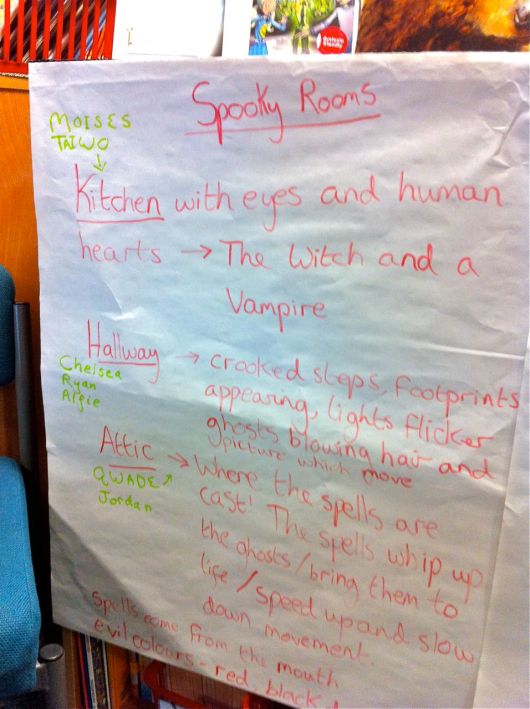 Spooky Rooms
MOISES
TAIWO
Kitchen with eyes and human
hearts → The Witch and a
Vampire
Hallway → crooked steps, footprints
Chelsea
Ryan
Argie
appearing, lights flicker
ghosts blowing hair and
picture which move
Attic → Where the spells are
QWADE
Jordan
cast! The spells whip up
the ghosts/bring them to
life/speed up and slow
down movement.
Spells come from the mouth
evil colours - red, black